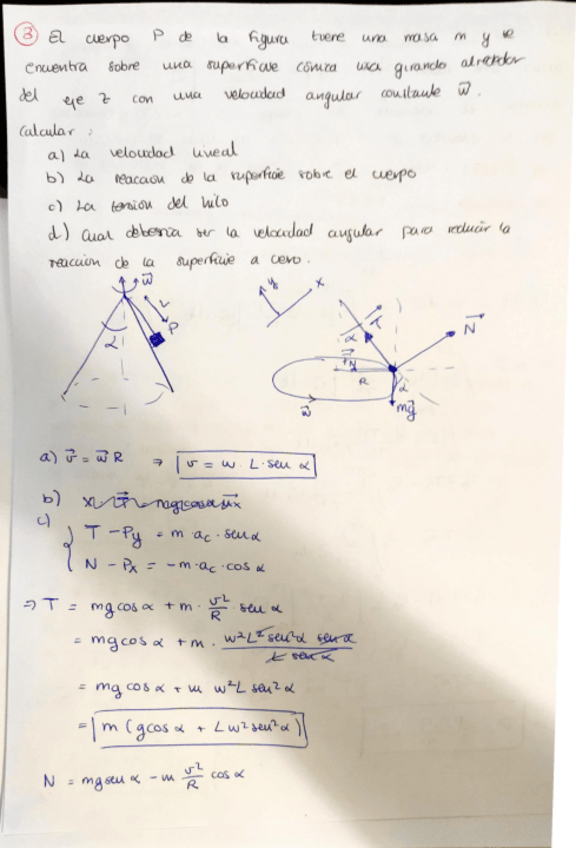 ③ El cuerpo P de la figura tiene una masa m y se
encuentra sobre una superficie cónica lisa girando alrededor
del eje z con una velocidad angular constante w⃗.
Calcular:
a) La velocidad lineal
b) La reaccion de la superficie sobre el cuerpo
c) La tension del hilo
d) Cual deberia ser la velocidad angular para reducir la
reacción de la superficie a cero.
w⃗
L
P
α
y
x
T⃗
α
N⃗
R
α
w⃗
mg⃗
a) v⃗ = w⃗ R ⇒ v = w · L · sen α
b)
c)
T - Py = m · ac · sen α
N - Px = -m · ac · cos α
⇒ T = mg cos α + m · v²/R · sen α
= mg cos α + m · w² L² sen² α sen α / L sen α
= mg cos α + m w² L sen² α
= m (g cos α + L w² sen² α)
N = mg sen α - m v²/R cos α